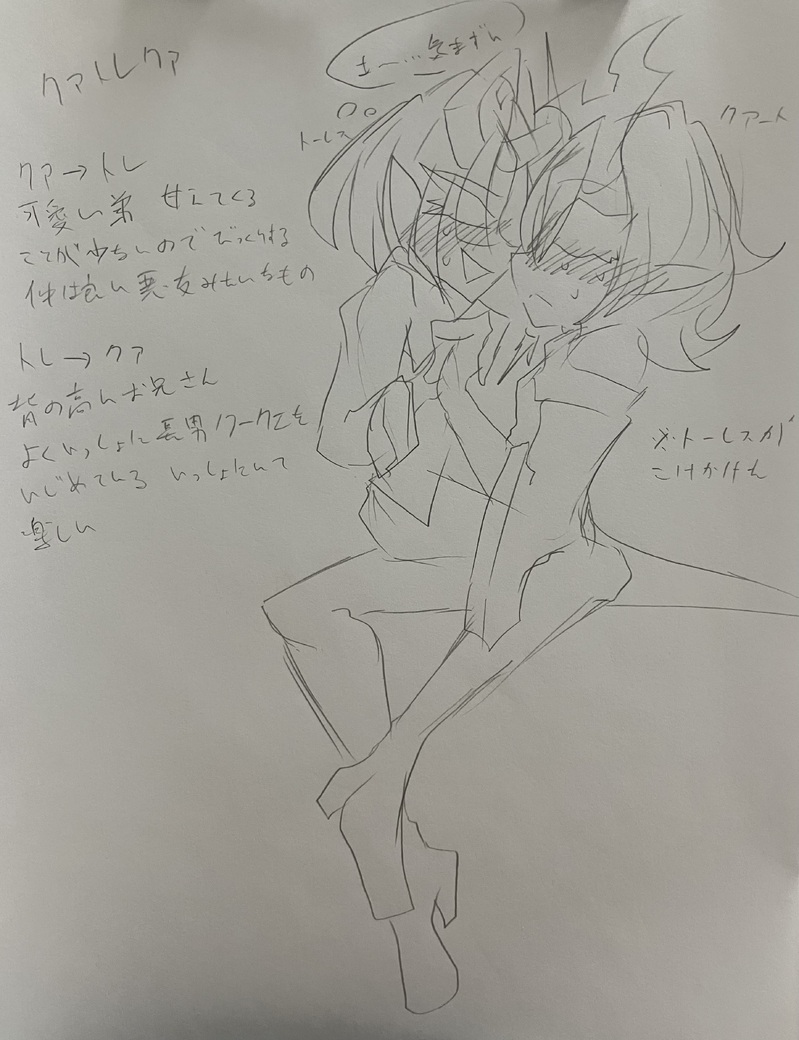 クァトレクァ
え〜…気まずい
トーレス
クアート
クァ→トレ
可愛い弟 甘えてくる
ことが少ないのでびっくりする
仲は良い悪友みたいなもの
トレ→クァ
背の高いお兄さん
よくいっしょに長男クークエを
いじめている いっしょにいて
楽しい
※トーレスが
こけかけた